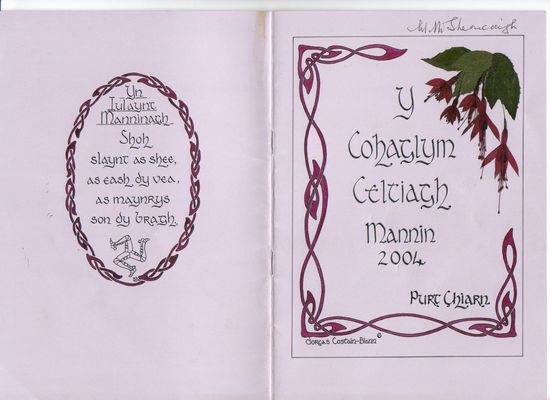 Yn
Manninagh
Shoh
slaynt as shee,
as eash dy vea,
as maynrys
son dy bragh.
Y
Cohaglym
Celtiagh
Mannin
2004
Purt Çhiarn
dorcas Costain-Blann ©